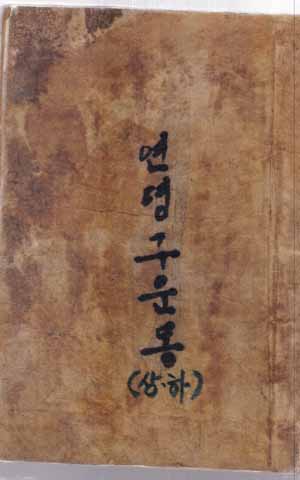 연뎡구운몽
(상·하)